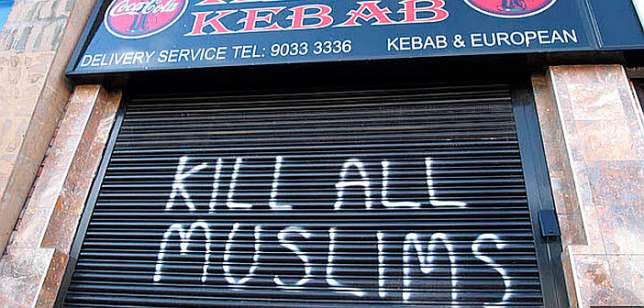 Coca-Cola
KEBAB
DELIVERY SERVICE TEL: 9033 3336
KEBAB & EUROPEAN
KILL ALL
MUSLIMS